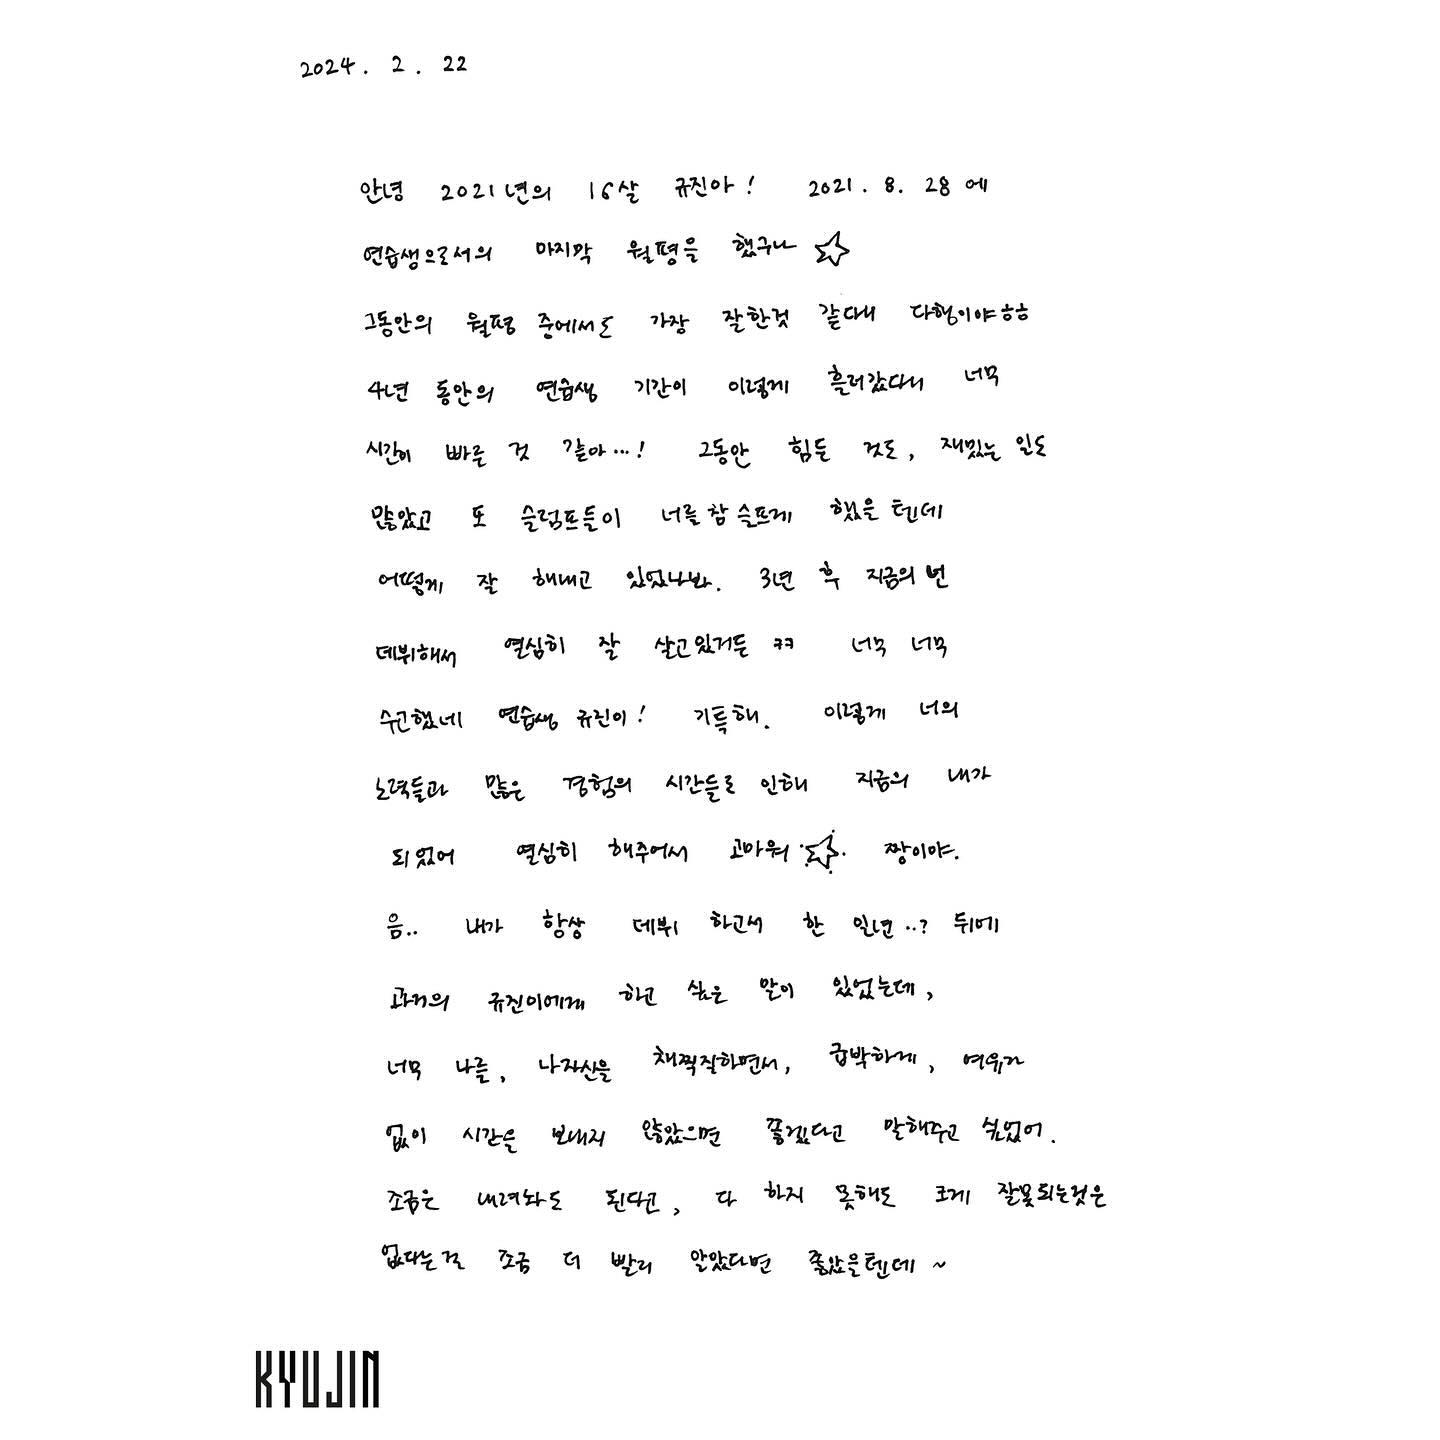 2024. 2. 22
안녕 2021년의 16살 규진아! 2021. 8. 28에
연습생으로서의 마지막 월평을 했구나 ☆
그동안의 월평 중에서도 가장 잘한것 같다니 다행이야ㅎㅎ
4년 동안의 연습생 기간이 이렇게 흘러갔다니 너무
시간이 빠른 것 같아...! 그동안 힘든 것도, 재밌는 일도
많았고 또 슬럼프들이 너를 참 슬프게 했을텐데
어떻게 잘 해내고 있었나봐. 3년 후 지금의 넌
데뷔해서 열심히 잘 살고있거든 ㅋㅋ 너무 너무
수고했네 연습생 규진이! 기특해. 이렇게 너의
노력들과 많은 경험의 시간들로 인해 지금의 내가
되었어 열심히 해주어서 고마워 ☆ 짱이야.
음.. 내가 항상 데뷔 하고서 한 일년..? 뒤에
과거의 규진이에게 하고 싶은 말이 있었는데,
너무 나를, 나자신을 채찍질하면서, 급박하게, 여유가
없이 시간을 보내지 않았으면 좋겠다고 말해주고 싶었어.
조금은 내려놔도 된다고, 다 하지 못해도 크게 잘못되는것은
없다는걸 조금 더 빨리 알았다면 좋았을텐데 ~
KYUJIN